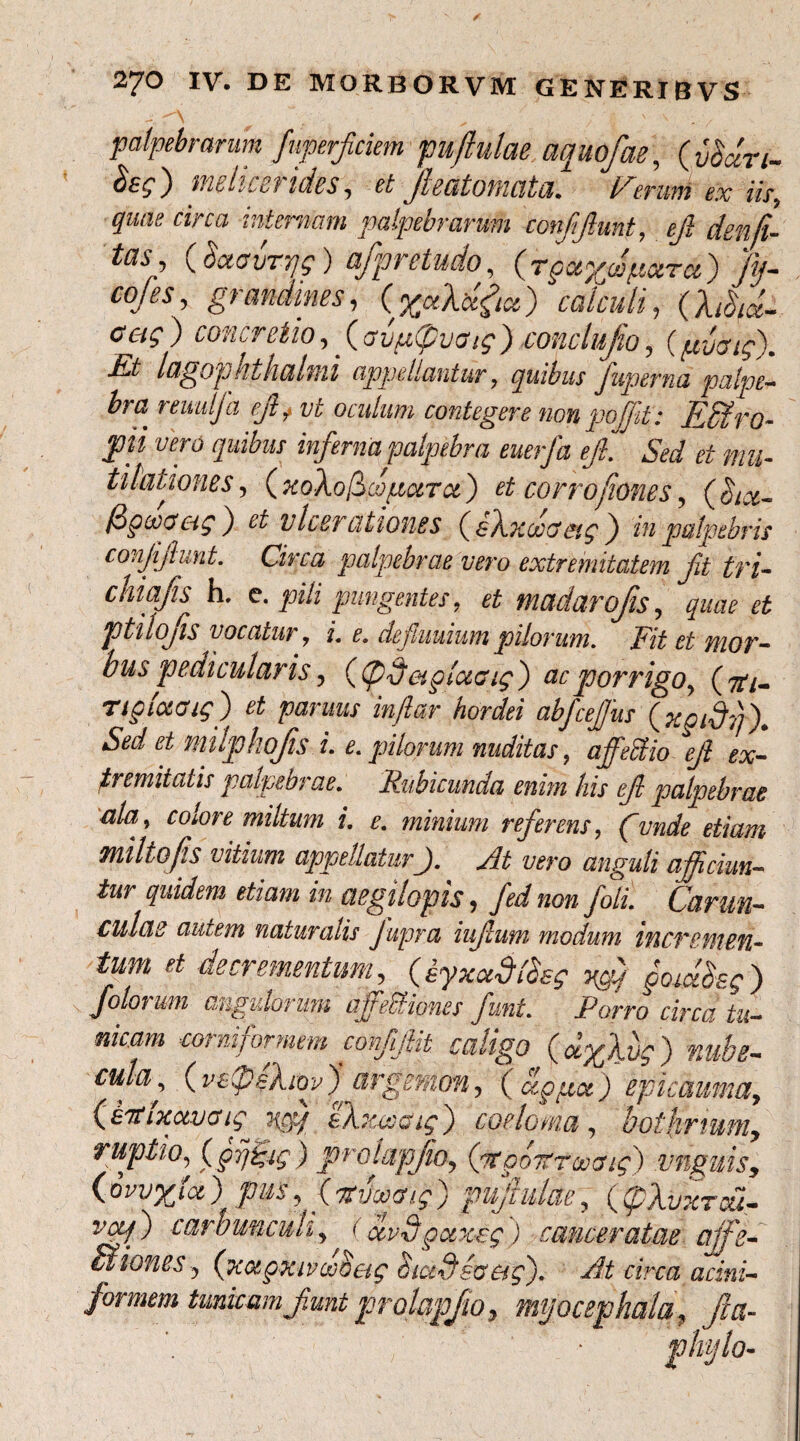 270 IV. DE MORBORVM GENERIBVS
palpebrarum ſuperficiem puſtulae aquoſae, (ὑδάτι-
δες) melicerides, et ſteatomata. Verum ex iis,
quae circa internam palpebrarum conſiſtunt, eſt denſi-
tas, (δασύτης) aſpretudo, (τραχώματα) ſy-
coſes, grandines, (χαλάζια) calculi, (λιδιά-
σεις) concretio, (σύμφυσις) concluſio, (μύσις).
Et lagophthalmi appellantur, quibus ſuperna palpe-
bra reuulſa eſt, vt oculum contegere non poſſit: Ectro-
pii vero quibus inferna palpebra euerſa eſt. Sed et mu-
tilationes, (κολοβώματα) et corroſiones, (δια-
βρώσεις) et vlcerationes (ἑλκώσεις) in palpebris
conſiſtunt. Circa palpebrae vero extremitatem fit tri-
chiaſis h. e. pili pungentes, et madaroſis, quae et
ptiloſis vocatur, i. e. defluuium pilorum. Fit et mor-
bus pedicularis, (φθειρίασις) ac porrigo, (πι-
τιρίασις) et paruus inſtar hordei abſceſſus (κριθὴ).
Sed et milphoſis i. e. pilorum nuditas, affectio eſt ex-
tremitatis palpebrae. Rubicunda enim his eſt palpebrae
ala, colore miltum i. e. minium referens, (vnde etiam
miltoſis vitium appellatur). At vero anguli afficiun-
tur quidem etiam in aegilopis, ſed non ſoli. Carun-
culae autem naturalis ſupra iuſtum modum incremen-
tum et decrementum, (ἐγκαθίδες καὶ ῥοιάδες)
ſolorum angulorum affectiones ſunt. Porro circa tu-
nicam corniformem conſiſtit caligo (ἀχλὺς) nube-
cula, (νεφέλιον) argemon, (ἄρμα) epicauma,
(ἐπίκαυσις καὶ ἕλκωσις) coeloma, bothrium,
ruptio, (ῥῆξις) prolapſio, (πρόπτωσις) vnguis,
(ὀνυχία) pus, (πύωσις) puſtulae, (φλυκταί-
ναι) carbunculi, (ἄνθρακες) canceratae affe-
ctiones, (καρκινώδεις διαθέσεις). At circa acini-
formem tunicam fiunt prolapſio, myocephala, ſta-
phylo-